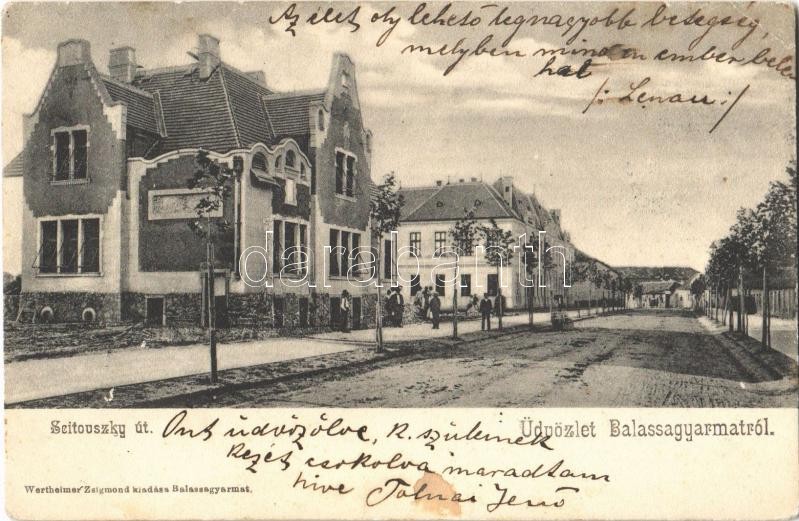 Az élet oly lehető legnagyobb betegség,
melyben minden ember bele
hal
/: Lenau :/
darabanth.com
Scitovszky út.
Üdvözlet Balassagyarmatról.
Önt üdvözölve, k. szüleinek
kezét csókolva maradtam
híve Tolnai Jenő
Wertheimer Zsigmond kiadása Balassagyarmat.